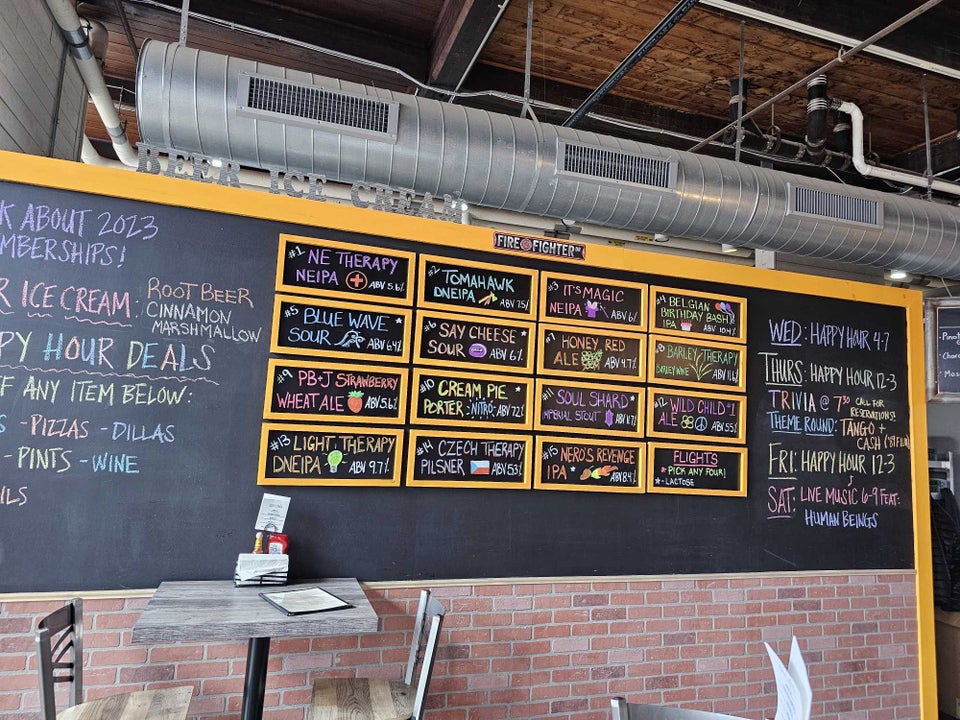 BEER ICE CREAM
FIRE FIGHTER
K ABOUT 2023
MBERSHIPS!
R ICE CREAM: ROOT BEER
CINNAMON
MARSHMALLOW
PY HOUR DEALS
FF ANY ITEM BELOW:
S - PIZZAS - DILLAS
- PINTS - WINE
AILS
#1 NE THERAPY
NEIPA ABV 5.6%
#2 TOMAHAWK
DNEIPA ABV 7.5%
#3 IT'S MAGIC
NEIPA ABV 6%
#4 BELGIAN
BIRTHDAY BASH
IPA ABV 10.4%
#5 BLUE WAVE *
SOUR ABV 6.4%
#6 SAY CHEESE *
SOUR ABV 6%
#7 HONEY RED
ALE ABV 4.7%
#8 BARLEY THERAPY
BARLEYWINE ABV 11.6%
#9 PB+J STRAWBERRY
WHEAT ALE ABV 5.6%
#10 CREAM PIE *
PORTER -NITRO- ABV 7.2%
#11 SOUL SHARD
IMPERIAL STOUT ABV 11.7%
#12 WILD CHILD #1
ALE ABV 5.5%
#13 LIGHT THERAPY
DNEIPA ABV 9.7%
#14 CZECH THERAPY
PILSNER ABV 5.3%
#15 NERO'S REVENGE
IPA ABV 8.4%
FLIGHTS
* PICK ANY FOUR!
* - LACTOSE
WED: HAPPY HOUR 4-7
THURS: HAPPY HOUR 12-3
TRIVIA @ 7:30 CALL FOR
RESERVATIONS!
THEME ROUND: TANGO +
CASH ('89 FILM)
FRI: HAPPY HOUR 12-3
SAT: LIVE MUSIC 6-9 FEAT:
HUMAN BEINGS